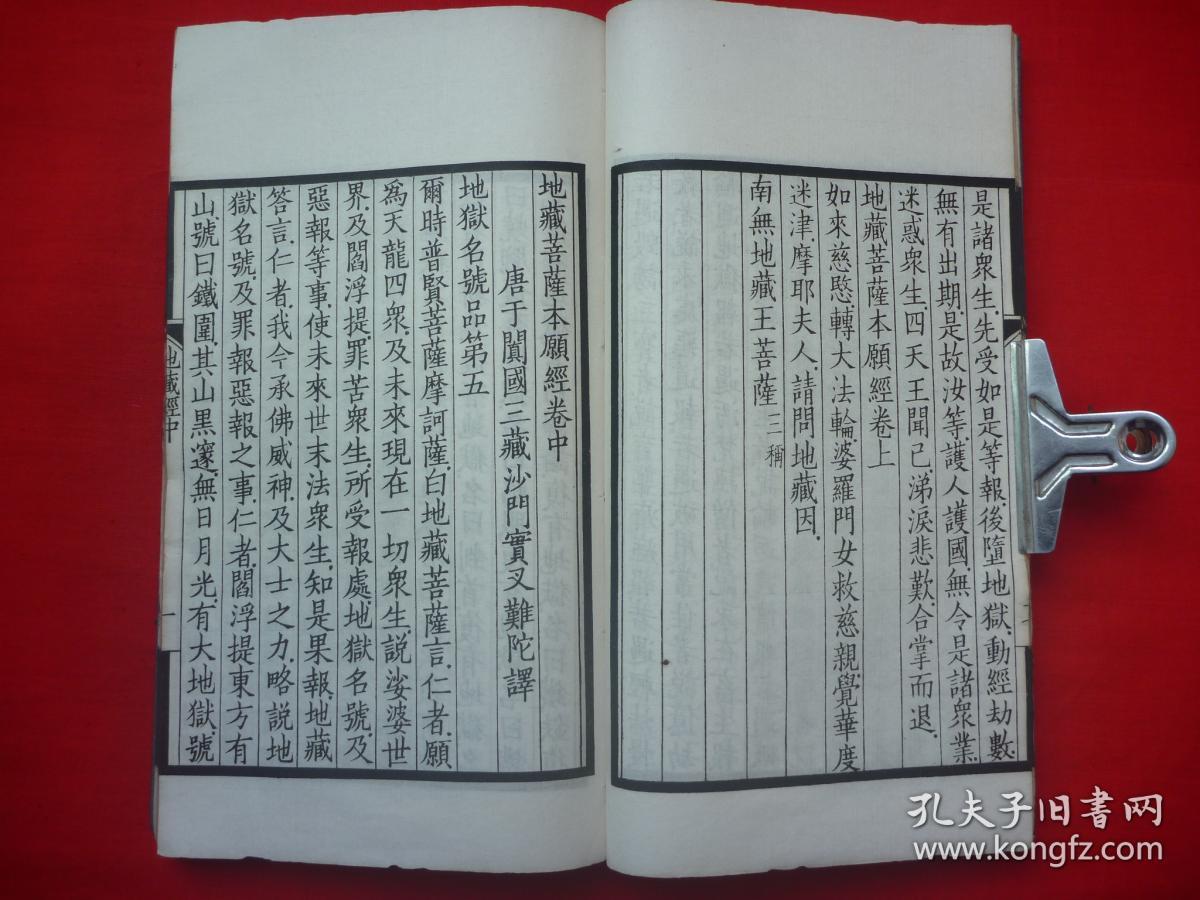 是諸衆生、先受如是等報、後墮地獄、動經劫數、
無有出期、是故汝等、護人護國、無令是諸衆業、
迷惑衆生、四天王聞已、涕淚悲歎、合掌而退、
地藏菩薩本願經卷上
如來慈愍、轉大法輪、婆羅門女救慈親、覺華度
迷津、摩耶夫人、請問地藏因、
南無地藏王菩薩 三稱
地藏菩薩本願經卷中
唐于闐國三藏沙門實叉難陀譯
地獄名號品第五
爾時普賢菩薩摩訶薩、白地藏菩薩言、仁者、願
爲天龍四衆、及未來現在一切衆生、說娑婆世
界、及閻浮提、罪苦衆生、所受報處、地獄名號、及
惡報等事、使未來世末法衆生、知是果報、地藏
答言、仁者、我今承佛威神、及大士之力、略說地
獄名號、及罪報惡報之事、仁者、閻浮提東方有
山、號曰鐵圍、其山黑邃、無日月光、有大地獄、號
地藏經中
一
孔夫子旧书网
www.kongfz.com